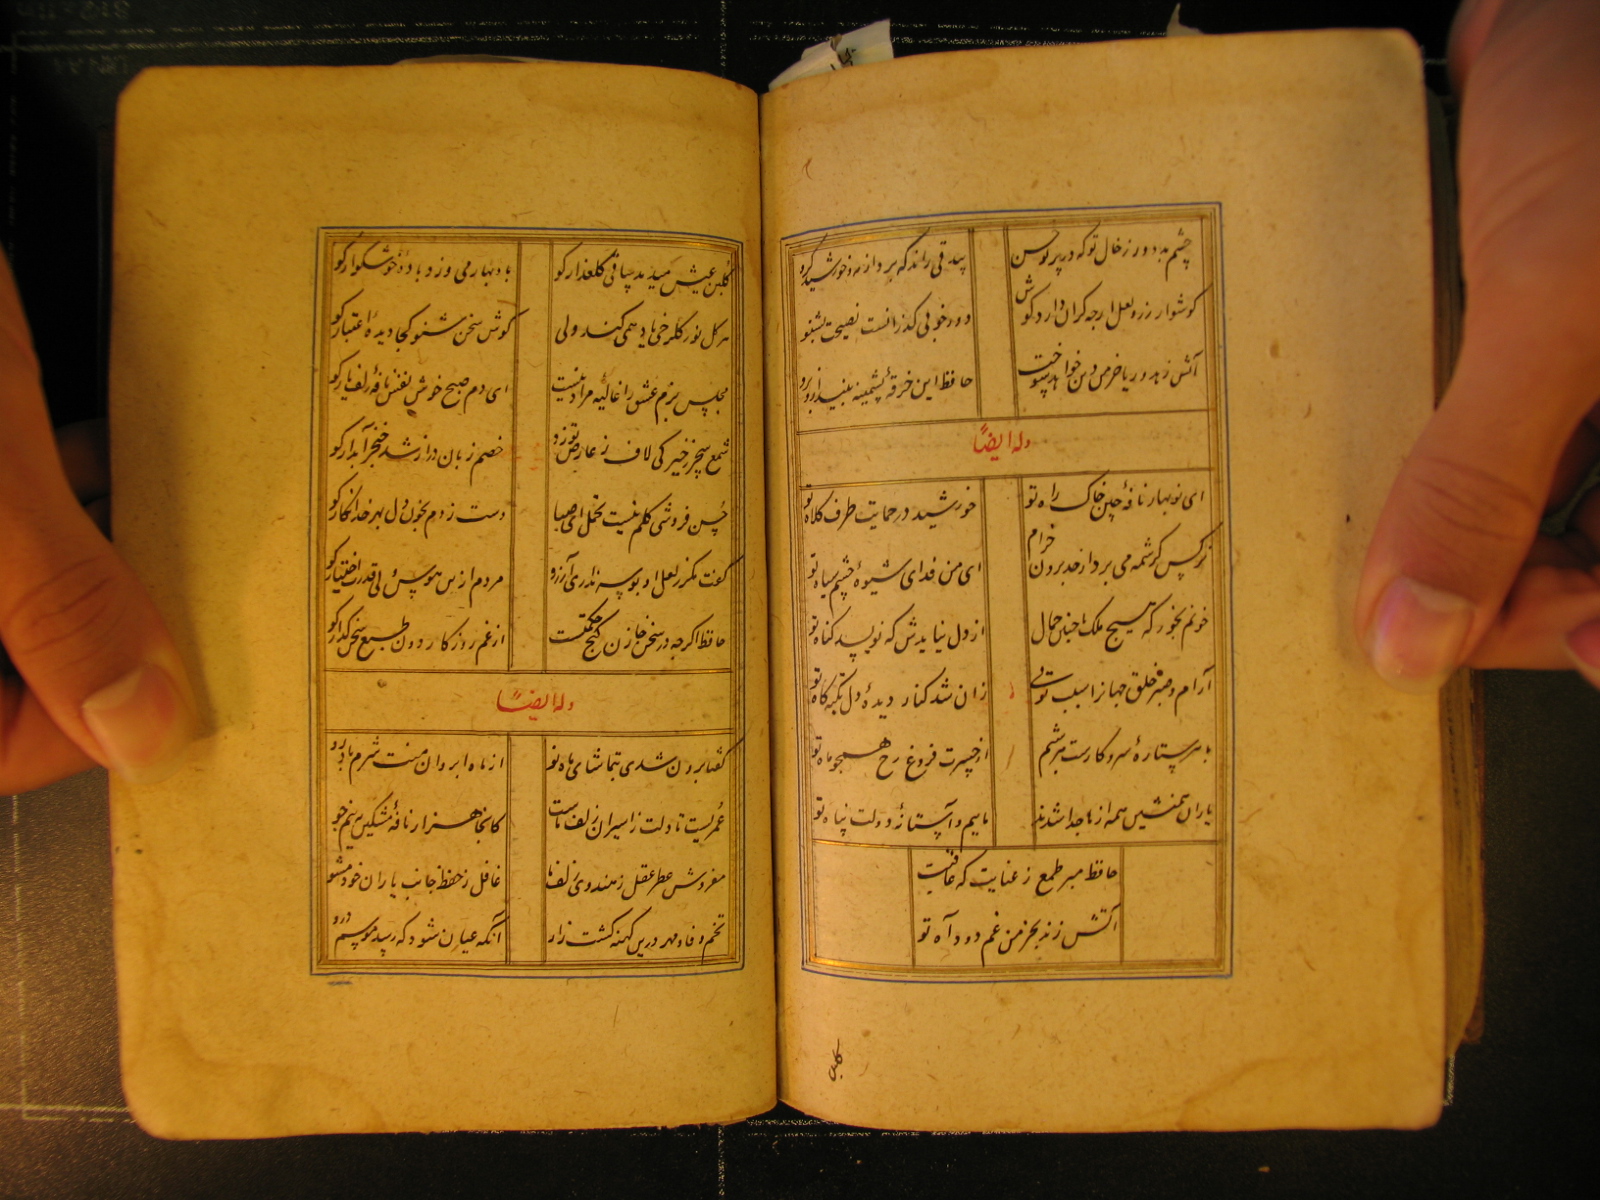 چشم بد دور ز خال تو که در پر حسن
بیدقی راند که برد از مه و خورشید گرو
گوشوار زر و لعل ارچه گران دارد گوش
دور خوبی گذرانست نصیحت بشنو
آتش زهد و ریا خرمن دین خواهد سوخت
حافظ این خرقهٔ پشمینه بیند از و برو
وله ایضاً
ای نوبهار نافهٔ چین خاک راه تو
خورشید در حمایت طرف کلاه تو
نرکس کرشمه می برد از حد برون خرام
ای من فدای شیوهٔ چشم سیاه تو
خونم بخور که هیچ ملک با چنین جمال
از دل نیایدش که نویسد کناه تو
آرام و صبر خلق جهانرا سبب تویی
زان شد کنار دیدهٔ دل تکیه کاه تو
با هر ستارهٔ سر و کارست هر شبم
از حسرت فروغ رخ همچو ماه تو
یاران همنشین همه از ما جدا شدند
ماییم و آستانهٔ دولت پناه تو
حافظ مبر طمع ز عنایت که عاقبت
آتش زند بخرمن غم دود آه تو
کلبن
کلبن عیش میدمد ساقی کلعذار کو
باد بهار می وزد بادهٔ خوشکوار کو
هر کل نو ز کلرخی یاد همی کند ولی
کوش سخن شنو کجا دیدهٔ اعتبار کو
مجلس بزم عشق را غالیهٔ مراد نیست
ای دم صبح خوش نفس نافهٔ زلف یار کو
شمع سحر ز خیرکی لاف ز عارض تو زد
خصم زبان دراز شد خنجر آبدار کو
حسن فروشی کلم نیست تحمل ای صبا
دست زدم بخون دل بهر خدا نکار کو
کفت مکر ز لعل او بوسه نداری آرزو
مردم ازین هوس ولی قدرت اختیار کو
حافظ اکرچه در سخن خازن کنج حکمتست
از غم روزکار دون طبع سخن کذار کو
وله ایضاً
کفتا برون شدی بتماشای ماه نو
از ماه ابروان منت شرم باد رو
عمریست تا دلت ز اسیران زلف ماست
غافل ز حفظ جانب یاران خود مشو
مفروش عطر عقل بهندوی زلف ما
کانجا هزار نافهٔ مشکین بنیم جو
تخم وفا و مهر درین کهنه کشت زار
آنکه عیان شود که رسد موسم درو